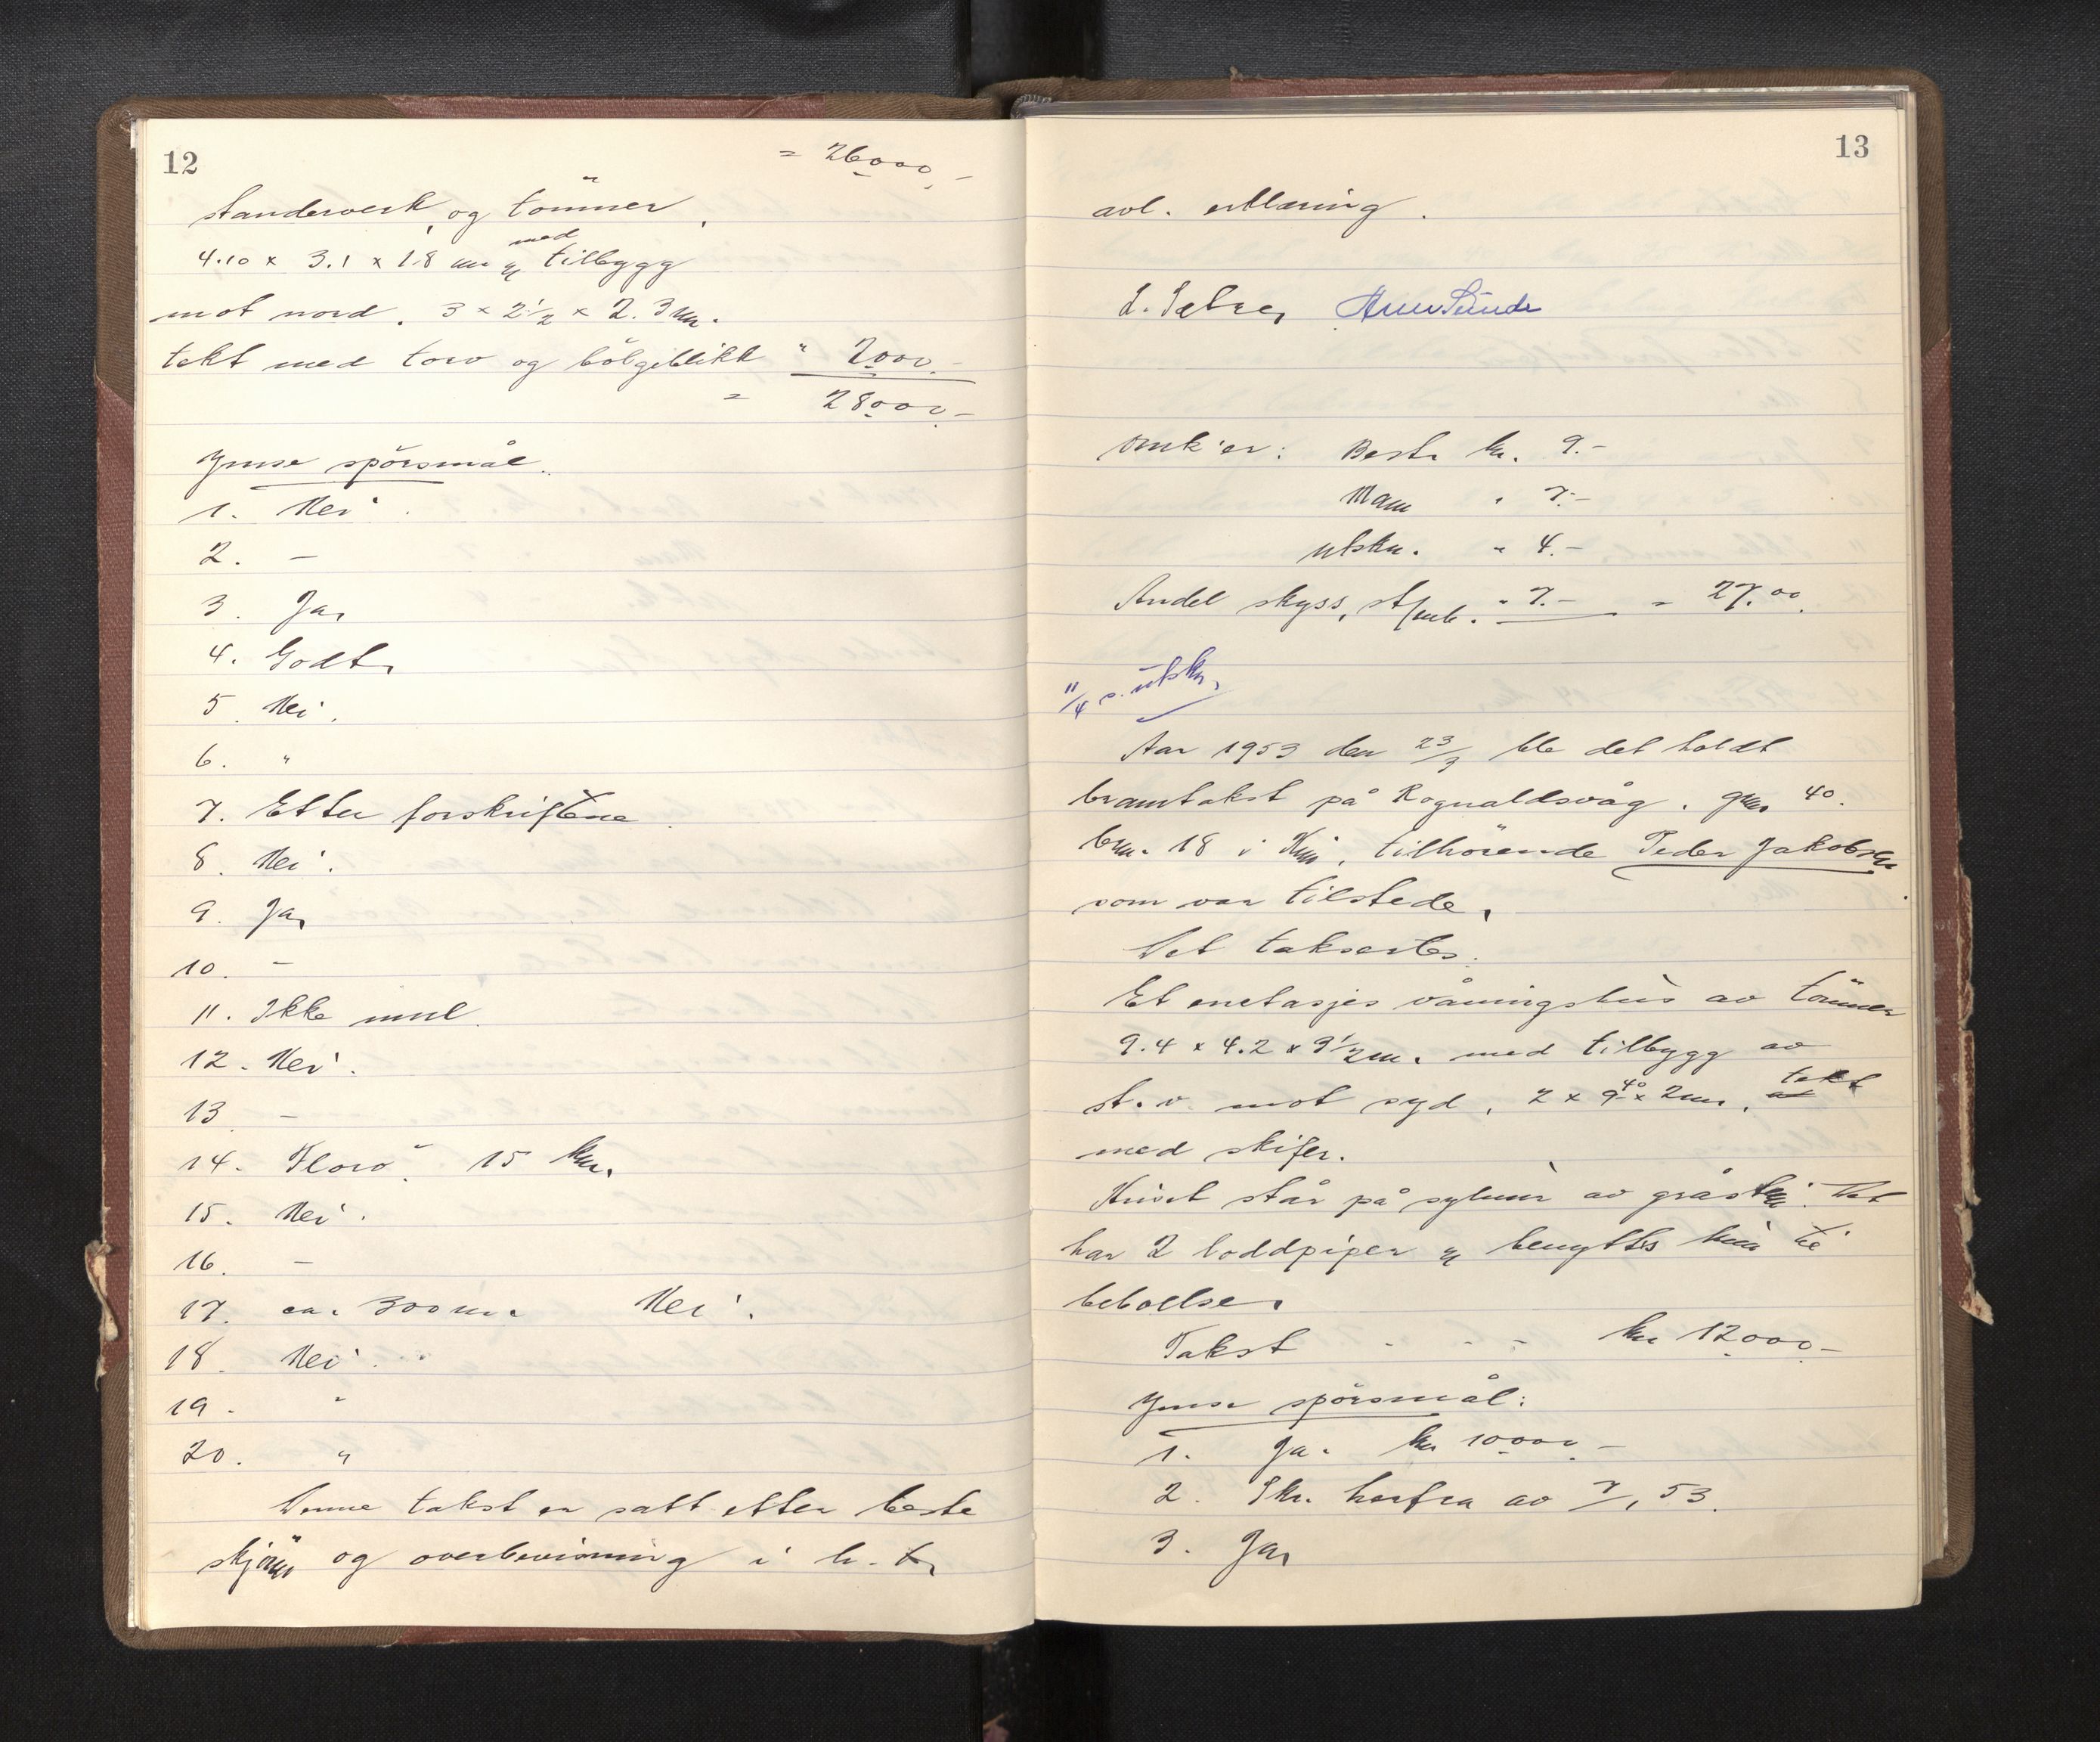 12
= 26000,-
standerverk, og tömmer.
4.10 x 3.1 x 1.8 m med tilbygg
mot nord. 3 x 2 1/2 x 2.3 m.
tekt med torv og bölgeblikk " 2000.-
= 28000.-
Ymse spörsmål.
1. Nei.
2. -
3. Ja,
4. Godt,
5. Nei.
6. "
7. Etter forskriftene.
8. Nei.
9. Ja,
10. -
11. Ikke innl.
12. Nei.
13. -
14. Florö. 15 km.
15. Nei.
16. -
17. ca. 300 m. Nei.
18. Nei.
19. "
20. "
Denne takst er satt etter beste
skjönn og overbevisning i h. t.
13
avl. erklæring.
L. Sætre, Arne Sunde
Omk'er: Best. kr. 9.-
Mann " 7.-
utskr. " 4.-
Andel skyss, st/mb. " 7.- = 27.00.
11/4 s. utskr.
Aar 1953 den 23/3 ble det holdt
branntakst på Rognaldsvåg. gnr. 40.
bnr. 18 i Kinn, tilhörende Peder Jakobsen
som var tilstede.
Det taksertes.
Et enetasjes våningshus av tömmer
9.4 x 4.2 x 3 1/2 m. med tilbygg av
st.v. mot syd, 2 x 9.40 x 2 m. tekt
med skifer.
Huset står på sylmur av gråstein. Det
har 2 loddpiper og benyttes kun til
beboelse.
Takst - - - kr 12000.-
Ymse spörsmål:
1. Ja. kr 10000.-
2. Skr. herfra av 7/1 53.
3. Ja,